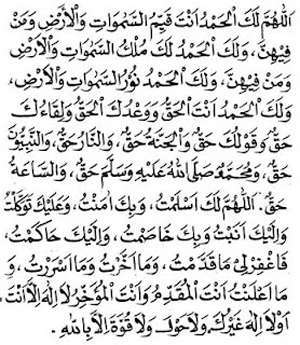 اَللّٰهُمَّ لَكَ الْحَمْدُ اَنْتَ قَيِّمُ السَّمٰوَاتِ وَالْاَرْضِ وَمَنْ
فِيْهِنَّ، وَلَكَ الْحَمْدُ لَكَ مُلْكُ السَّمٰوَاتِ وَالْاَرْضِ
وَمَنْ فِيْهِنَّ، وَلَكَ الْحَمْدُ نُوْرُ السَّمٰوَاتِ وَالْاَرْضِ،
وَلَكَ الْحَمْدُ اَنْتَ الْحَقُّ وَوَعْدُكَ الْحَقُّ وَلِقَاءُكَ
حَقٌّ وَقَوْلُكَ حَقٌّ وَالْجَنَّةُ حَقٌّ، وَالنَّارُ حَقٌّ، وَالنَّبِيُّوْنَ
حَقٌّ، وَمُحَمَّدٌ صَلَّى اللهُ عَلَيْهِ وَسَلَّمَ حَقٌّ، وَالسَّاعَةُ
حَقٌّ. اَللّٰهُمَّ لَكَ اَسْلَمْتُ، وَبِكَ اٰمَنْتُ، وَعَلَيْكَ تَوَكَّلْتُ
وَاِلَيْكَ اَنَبْتُ وَبِكَ خَاصَمْتُ، وَاِلَيْكَ حَاكَمْتُ،
فَاغْفِرْلِيْ مَا قَدَّمْتُ، وَمَا اَخَّرْتُ وَمَا اَسْرَرْتُ، وَ
مَا اَعْلَنْتُ اَنْتَ الْمُقَدِّمُ وَاَنْتَ الْمُؤَخِّرُ لَا اِلٰهَ اِلَّا اَنْتَ،
اَوْ لَا اِلٰهَ غَيْرُكَ وَلَا حَوْلَ وَلَا قُوَّةَ اِلَّا بِاللهِ.